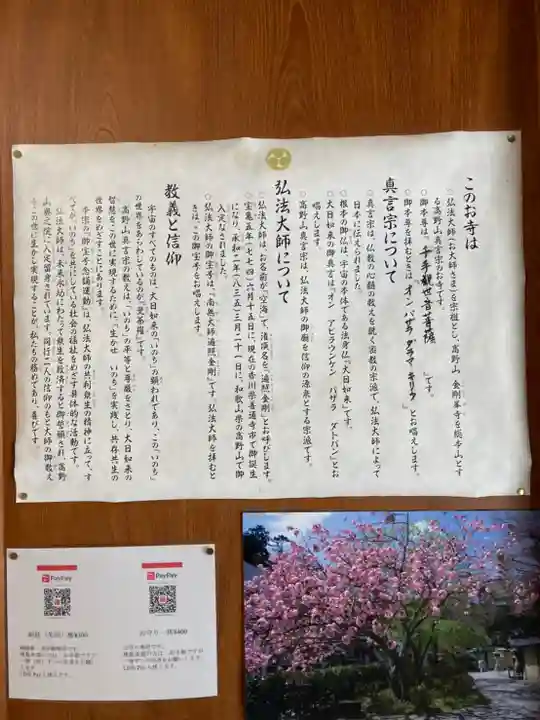 このお寺は
○弘法大師(お大師さま)を宗祖とし、高野山 金剛峯寺を総本山とす
る高野山真言宗のお寺です。
○御本尊は、「千手観世音菩薩」です。
○御本尊を拝むときは「オン バザラ ダラマ キリク」とお唱えします。
真言宗について
○真言宗は、仏教の心髄の教えを説く密教の宗派で、弘法大師によって
日本に伝えられました。
○根本の御仏は、宇宙の本体である法身仏「大日如来」です。
○大日如来の御真言は「オン アビラウンケン バザラ ダトバン」とお
唱えします。
○高野山真言宗は、弘法大師の御廟を信仰の源泉とする宗派です。
弘法大師について
○弘法大師は、お名前が「空海」で、灌頂名を「遍照金剛」とお呼びします。
○宝亀五年(七七四)六月十五日に、現在の香川県善通寺市で御誕生
になり、承和二年(八三五)三月二十一日に和歌山県の高野山で御
入定なされました。
○弘法大師の御宝号は、「南無大師遍照金剛」です。弘法大師を拝むと
きは、この御宝号をお唱えします。
教義と信仰
宇宙のすべてのものは、大日如来の「いのち」の顕われであり、この「いのち」
の世界をあらわしているのが、「曼荼羅」です。
高野山真言宗の教えは、「いのち」の平等と尊厳をさとり、大日如来の
智慧を、この世に実現するために、「生かせ いのち」を実践し、共存共生の
世界をめざすことにあります。
本宗の「御宝号念誦運動」は、弘法大師の共利群生の精神に立って、す
べてが「いのち」を大切にしている社会の様状をめざす具体的な活動です。
弘法大師は、未来永劫にわたって衆生を救済すると御誓願され、高野
山奥之院に入定留身されています。同行二人の信仰のもと大師の御教え
を、この世に生かし実現することが、私たちの務めであり、喜びです。
PayPay
PayPay
お守り一体¥400